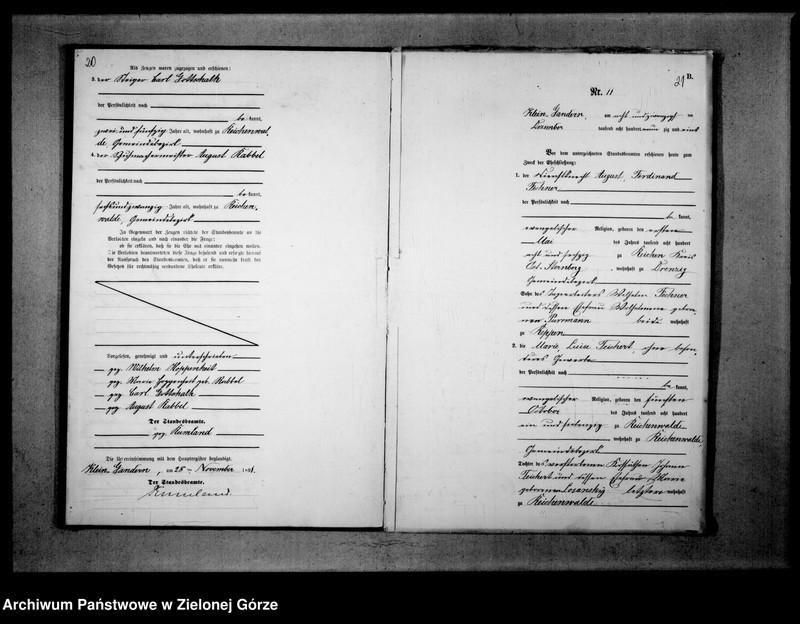 20
Als Zeugen waren zugezogen und erschienen:
3. der Steiger Carl Gottschalk
der Persönlichkeit nach
be kannt,
zwei und fünfzig Jahre alt, wohnhaft zu Reichenwal,
de, Gemeindebezirk
4. der Schuhmachermeister August Kabbel
der Persönlichkeit nach
be kannt,
sechsundzwanzig Jahre alt, wohnhaft zu Reichen,
walde, Gemeindebezirk
In Gegenwart der Zeugen richtete der Standesbeamte an die
Verlobten einzeln und nach einander die Frage:
ob sie erklären, daß sie die Ehe mit einander eingehen wollen.
Die Verlobten beantworteten diese Frage bejahend und erfolgte hierauf
der Ausspruch des Standesbeamten, daß er sie nunmehr kraft des
Gesetzes für rechtmäßig verbundene Eheleute erkläre.
Vorgelesen, genehmigt und unterschrieben
gez. Wilhelm Hoppenheit
gez. Marie Hoppenheit geb. Kabbel
gez. Carl Gottschalk
gez. August Kabbel
Der Standesbeamte.
gez. Rumland
Die Uebereinstimmung mit dem Hauptregister beglaubigt.
Klein Gandern, am 28 November 1891.
Der Standesbeamte.
Rumland
21
B.
Nr. 11
Klein Gandern, am acht und zwanzigsten
Dezember tausend acht hundert neun zig und eins
Vor dem unterzeichneten Standesbeamten erschienen heute zum
Zweck der Eheschließung:
1. der Dienstknecht August, Ferdinand
Fechner
der Persönlichkeit nach
be kannt,
evangelischer Religion, geboren den ersten
Mai des Jahres tausend acht hundert
acht und sechzig zu Reichen Kreis
Ost-Sternberg, wohnhaft zu Drenzig
Gemeindebezirk
Sohn des Wilhelm Fechner
und dessen Ehefrau Wilhelmine gebor,
nen Purrmann beide wohnhaft
zu Reppen
2. die Marie, Luise Teichert, ohne beson,
deres Gewerbe
der Persönlichkeit nach
be kannt,
evangelischer Religion, geboren den fünften
October des Jahres tausend acht hundert
ein und siebenzig zu Reichenwalde
wohnhaft zu Reichenwalde,
Gemeindebezirk
Tochter des verstorbenen Kossäthen Johann
Teichert und dessen Ehefrau Marie
geborenen Losansky letztere wohnhaft
zu Reichenwalde
Archiwum Państwowe w Zielonej Górze